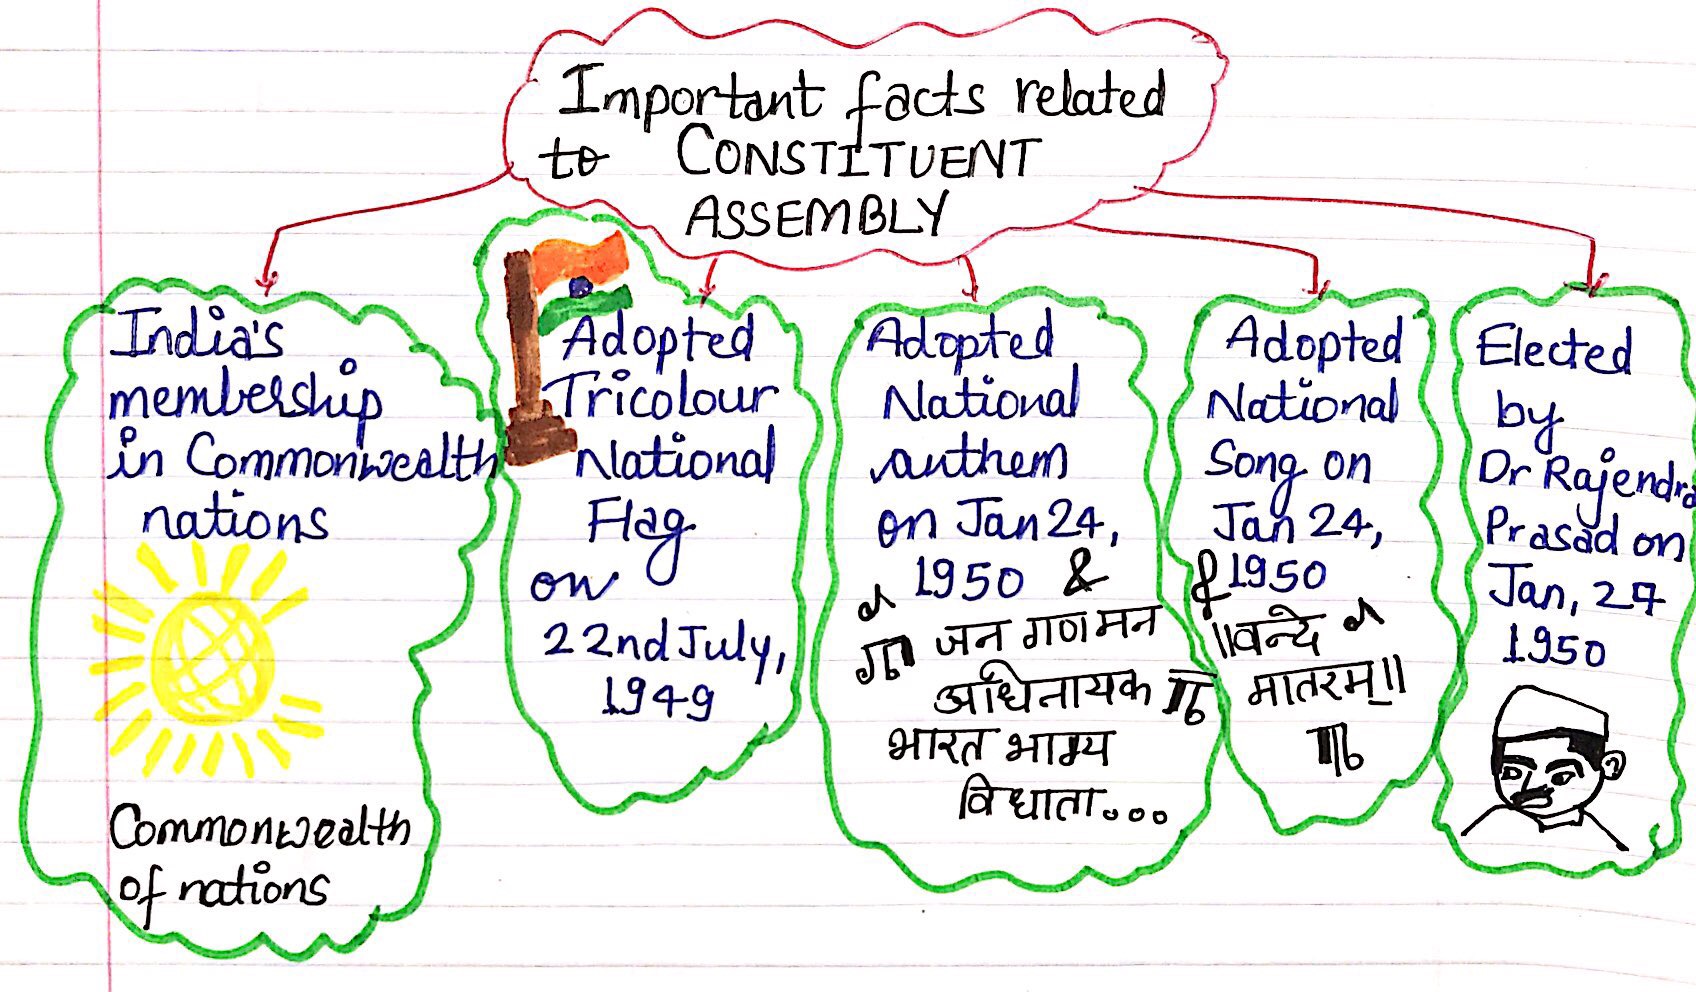 Important facts related
to CONSTITUENT
ASSEMBLY
India's
membership
in Commonwealth
nations
Commonwealth
of nations
Adopted
Tricolour
National
Flag
on
22nd July,
1949
Adopted
National
anthem
on Jan 24,
1950
जन गण मन
अधिनायक
भारत भाग्य
विधाता...
Adopted
National
Song on
Jan 24,
1950
॥वन्दे
मातरम्॥
Elected
by
Dr Rajendra
Prasad on
Jan, 24
1950